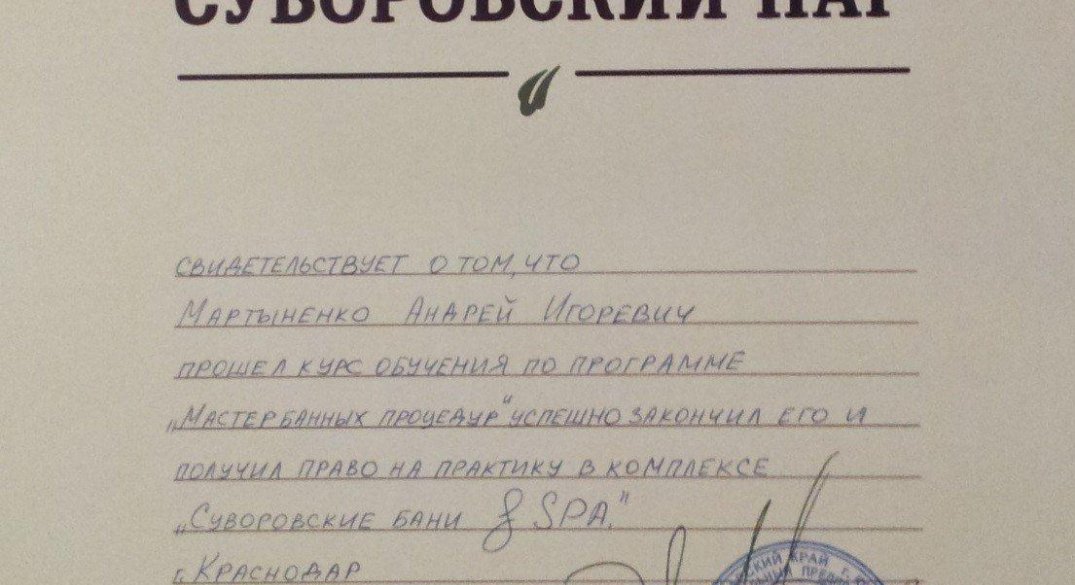 СУВОРОВСКИЙ ПАР
СВИДЕТЕЛЬСТВУЕТ О ТОМ, ЧТО
МАРТЫНЕНКО АНДРЕЙ ИГОРЕВИЧ
ПРОШЕЛ КУРС ОБУЧЕНИЯ ПО ПРОГРАММЕ
„МАСТЕР БАННЫХ ПРОЦЕДУР" УСПЕШНО ЗАКОНЧИЛ ЕГО И
ПОЛУЧИЛ ПРАВО НА ПРАКТИКУ В КОМПЛЕКСЕ
„СУВОРОВСКИЕ БАНИ & SPA."
г. КРАСНОДАР
КИЙ КРАЙ Г.